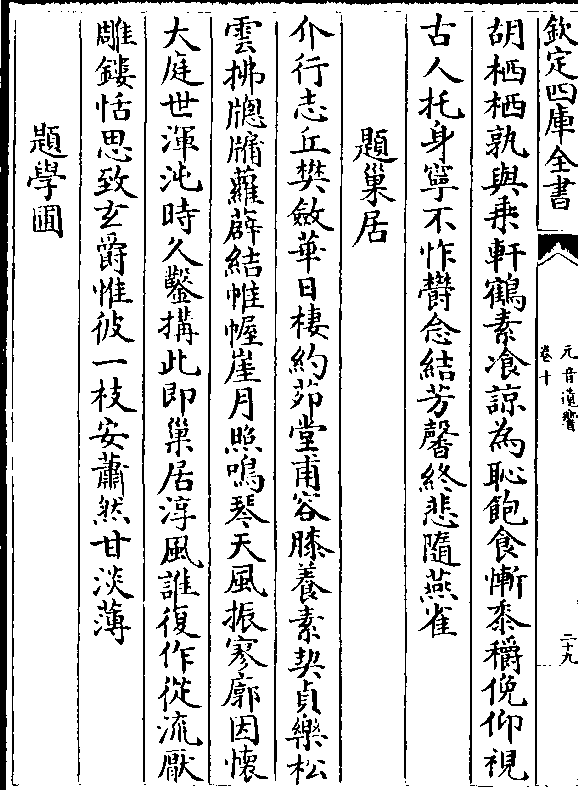 欽定四庫全書
元音遺響
卷十
二十九
胡栖栖孰與乗軒鶴素飡諒為恥飽食慚黍穱俛仰視
古人托身寧不怍欝念結芳馨終悲隨燕雀
題巢居
介行志丘樊斂華日棲約茆堂甫容膝養素契貞樂松
雲拂牕牖蘿薜結帷幄崖月照鳴琴天風振寥廓因懷
大庭世渾沌時久鑿搆此即巢居淳風誰復作從流厭
雕鏤恬思致玄爵惟彼一枝安蕭然甘淡薄
題學圃